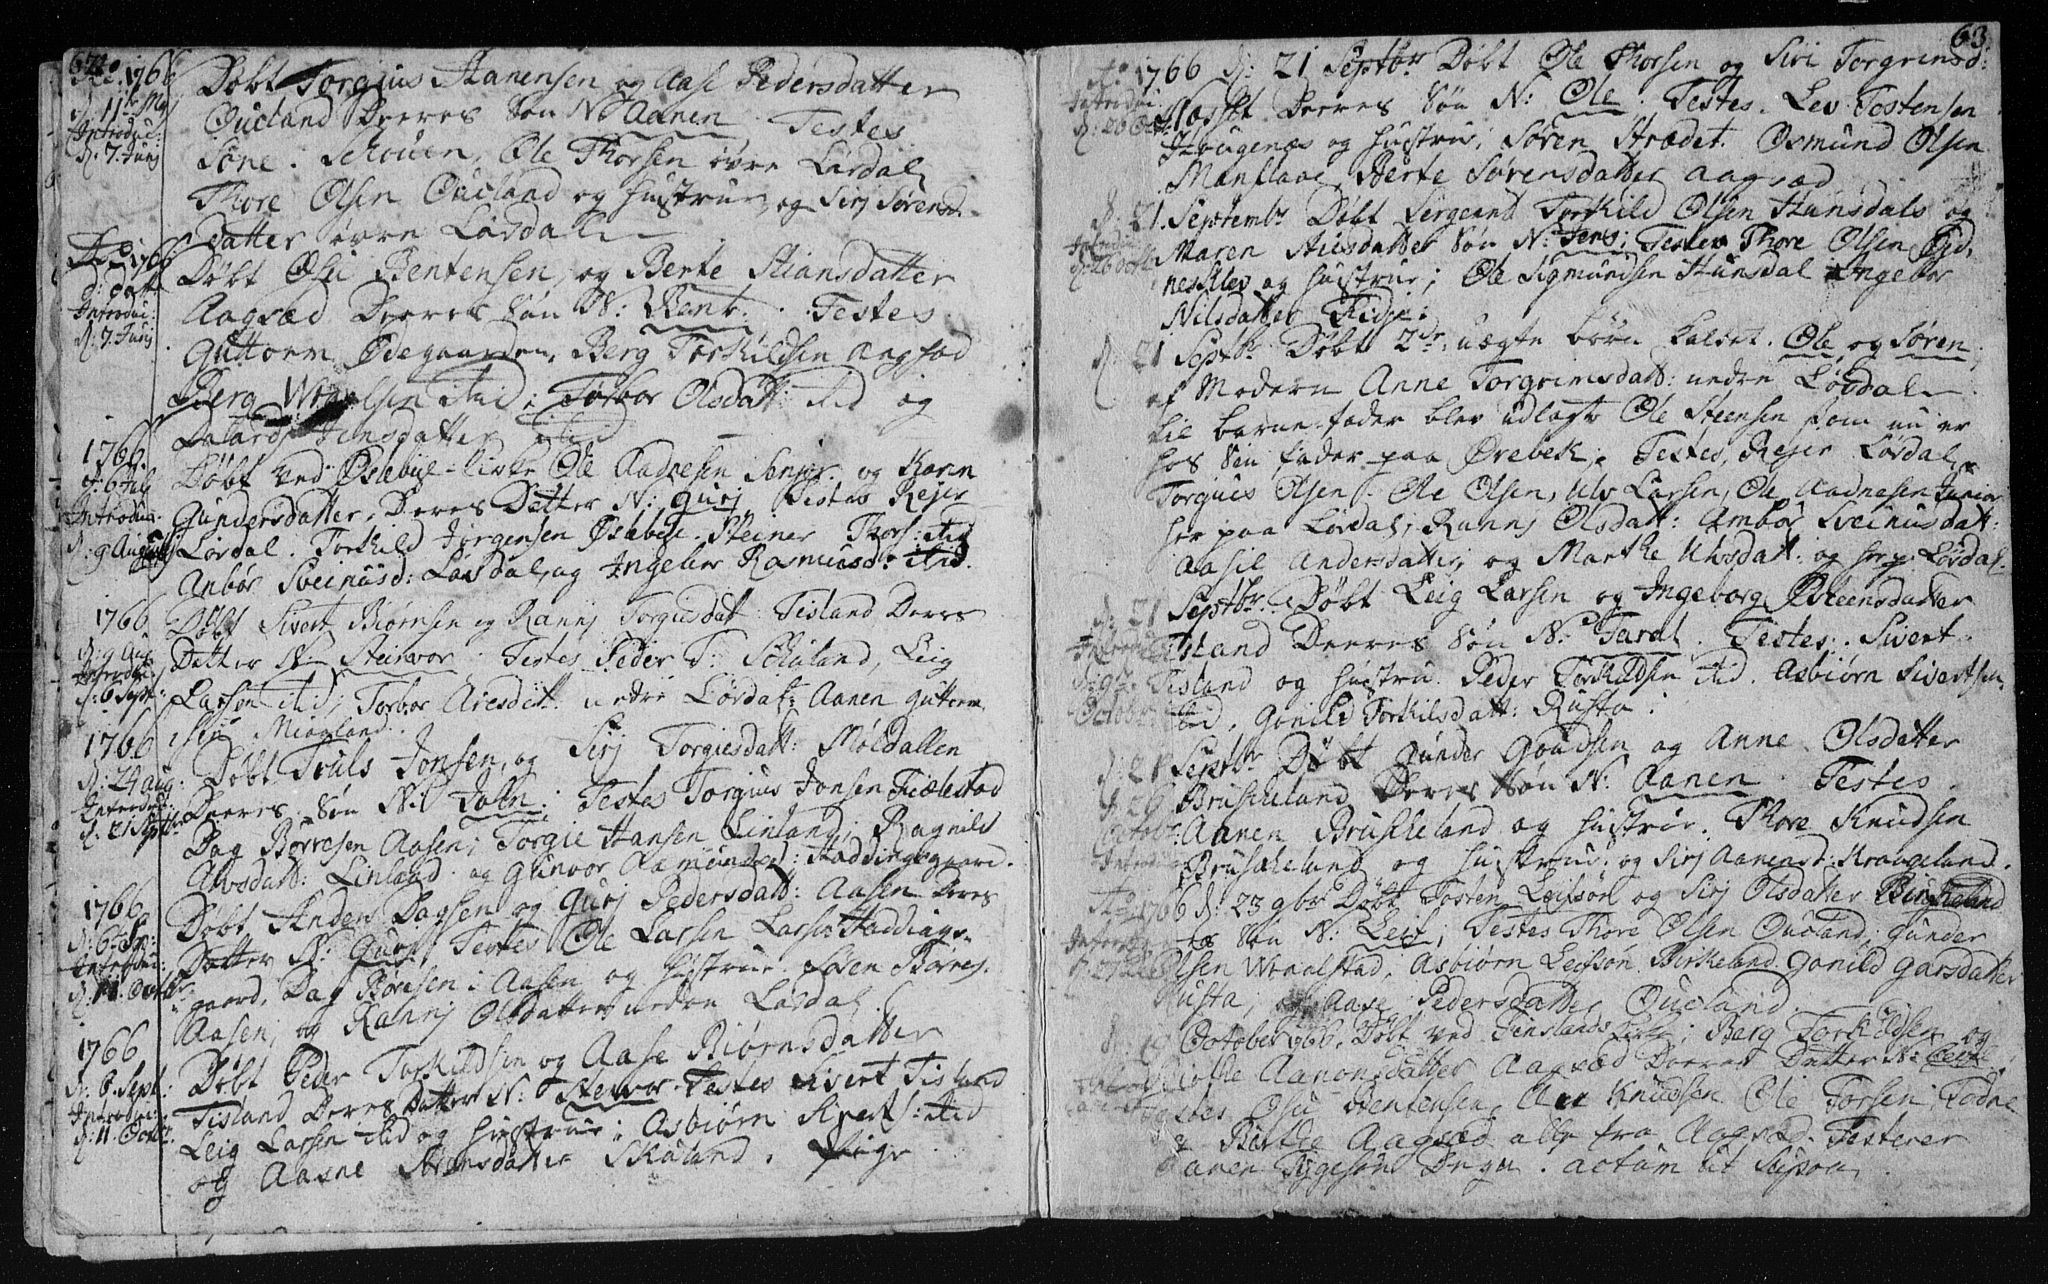 62.
Ao. 1766
d: 11te Maj
Introduc:
d. 7. Junj
Døbt Torgius Aanensen og Aase Pedersdatter
Oueland Deeres Søn N: Aanen. Testes
Sone. Schouen, Ole Thorsen øvre Lørdal,
Thore Olsen Oueland og hustrue, og Sirj Sørens-
datter øvre Lørdal.
Ao 1766
d: dato
Introduc:
d: 7. Junj
Døbt Osu Bentensen, og Berte Stiansdatter
Aagsæd Deeres Søn N: Bent. Testes
Guttorm Ødegaarden, Berg Torkildsen Aagsæd
Berg Olsen ibid; Torbor Olsdatt: ibid og
Jensdatter ibid
1766.
d. 6 July
Introduc.
d: 9 Augusti
Døbt ved Øslebye-kirke Ole Aadnesen Senior og Karen
Gundersdatter, Deres Detter N: Gurj Testes Rejer
Lørdal. Torkild Jørgensen Øslebye. Steiner Thors: ibid
Anbør Sveinusd: Lørdal, og Ingebor Rasmusd: ibid.
1766
d: 9 Aug
Introduc:
d: 6 Sept:
Døbt Sivert Biørnsen og Rannj Torgiusdatt Tisland Deres
Detter N: Steinvor. Testes Peder T: Schuland, Leig
Larsen ibid, Torbor Aresdtt. nedre Lørdal, Aanen Guttorm
sen Miogland.
1766
d: 24 Aug:
Introduc:
d. 21 Septbr
Døbt Truls Jonsen, og Sirj Torgiesdatt: Møldallen
Deeres Søn N: John; Testes Torgius Jonsen Fiælestad
Dag Børresen Aasen; Torgie Hansen Linland; Ragnild
Alvsdatt: Linland. og Gunvor Aamundsd: Haddingsgaard.
1766
d: 6te Sep:
Introduc:
d. 11. Octobr.
Døbt, Anders Dagsen og Gurj Pedersdatt: Aasen Deres
Datter N: Gurj, Testes Ole Larsen Larsen Haddings-
gaard, Dag Børresen i Aasen og hustrue. Søren Børres.
Aasen, og Rannj Olsdatter neden Lørdal.
1766
d: 6. Sept:
Introduc:
d: 11. Octobr.
Døbt Peder Torkildsen og Aase Biørnsdatter
Tisland Deres Datter N: Stenvor Testes Sivert Tisland
Leig Larsen ibid og hustrue; Asbiørn Sivert S: ibid
og Aasne Stiansdatter Skuland. Pige
63.
Ao 1766 d: 21 Septbr Døbt Ole Thorsen og Siri Torgrimsd:
Introduc.
d: 26 Octb:
Deeres Søn N: Ole. Testes. Lev Tostensen
Hougenæs og hustrue, Søren Strædet. Osmund Olsen
Manflaae, Berte Sørensdatter Aagsæd
d: 21. Septembr Døbt Sergeant Torkild Olsen Hunsdals og
Introduc
d: 26 Octb
Maren Nilsdatter Søn N: Jens; Testes Thore Olsen Eid,
og hustrue; Ole Sigmundsen Hunsdal Ingebor
Nilsdatter Pidje.
d: 21 Septbr Døbt 2de uægte børn kaldet. Ole og Søren,
af Modern Anne Torgrimsdatt: nedre Lørdal
til barne-fader blev udlagt Ole Steensen som nu er
hos sin fader paa Ørebek, Testes, Rejer Lørdal,
Torgius Olsen. Ole Olsen, Ulv Larsen, Ole Aadnesen Junior
her paa Lørdal; Rannj Olsdatt: Ambør Sveinusdatt:
Aasil Andersdatter, og Marthe Ulvsdatt: og her p: Lørdal.
d: 21 Septbr. Døbt Leig Larsen og Ingeborg Østeensdatter
Introduc
Tisland Deeres Søn N: Taral. Testes: Sivert
Octobr.
Tisland og hustru. Peder Torkildsen ibid. Asbiørn Sivertsen
ibid, Gonild Torkilsdatt: Rusta.
d: 21 Septbr Døbt Gunder Goudsen og Anne Olsdatter
d. 26
Octobr:
Introdu
Bruskeland Deres Søn N: Aanen. Testes.
Aanen Bruskeland og hustrue. Thore Knudsen
Bruskeland og hustrue. og Sirj Aanensd: Kraageland.
Ao 1766 d: 23 9br Døbt Tosten Leifsøn og Sirj Olsdatter Birkeland
Introduc
Søn N: Leif; Testes Thore Olsen Oueland, Gunder
Olsen Wraalstad, Asbiørn Leifsøn Birkeland Gonild Garsdatter
Rusta, Aase Pedersdatter Oueland
d. 19 October 1766. Døbt ved Finslands kirke; Berg Torkildsen og
Aanonsdatter Aagsæd Deeres Datter N: Berte
Testes Osu Bentensen, Knudsen Ole Torsen Todne
& Berthe Aagsæd alle fra Aagsæd. Testerer
Aanen Tygesøn. actum ut supra